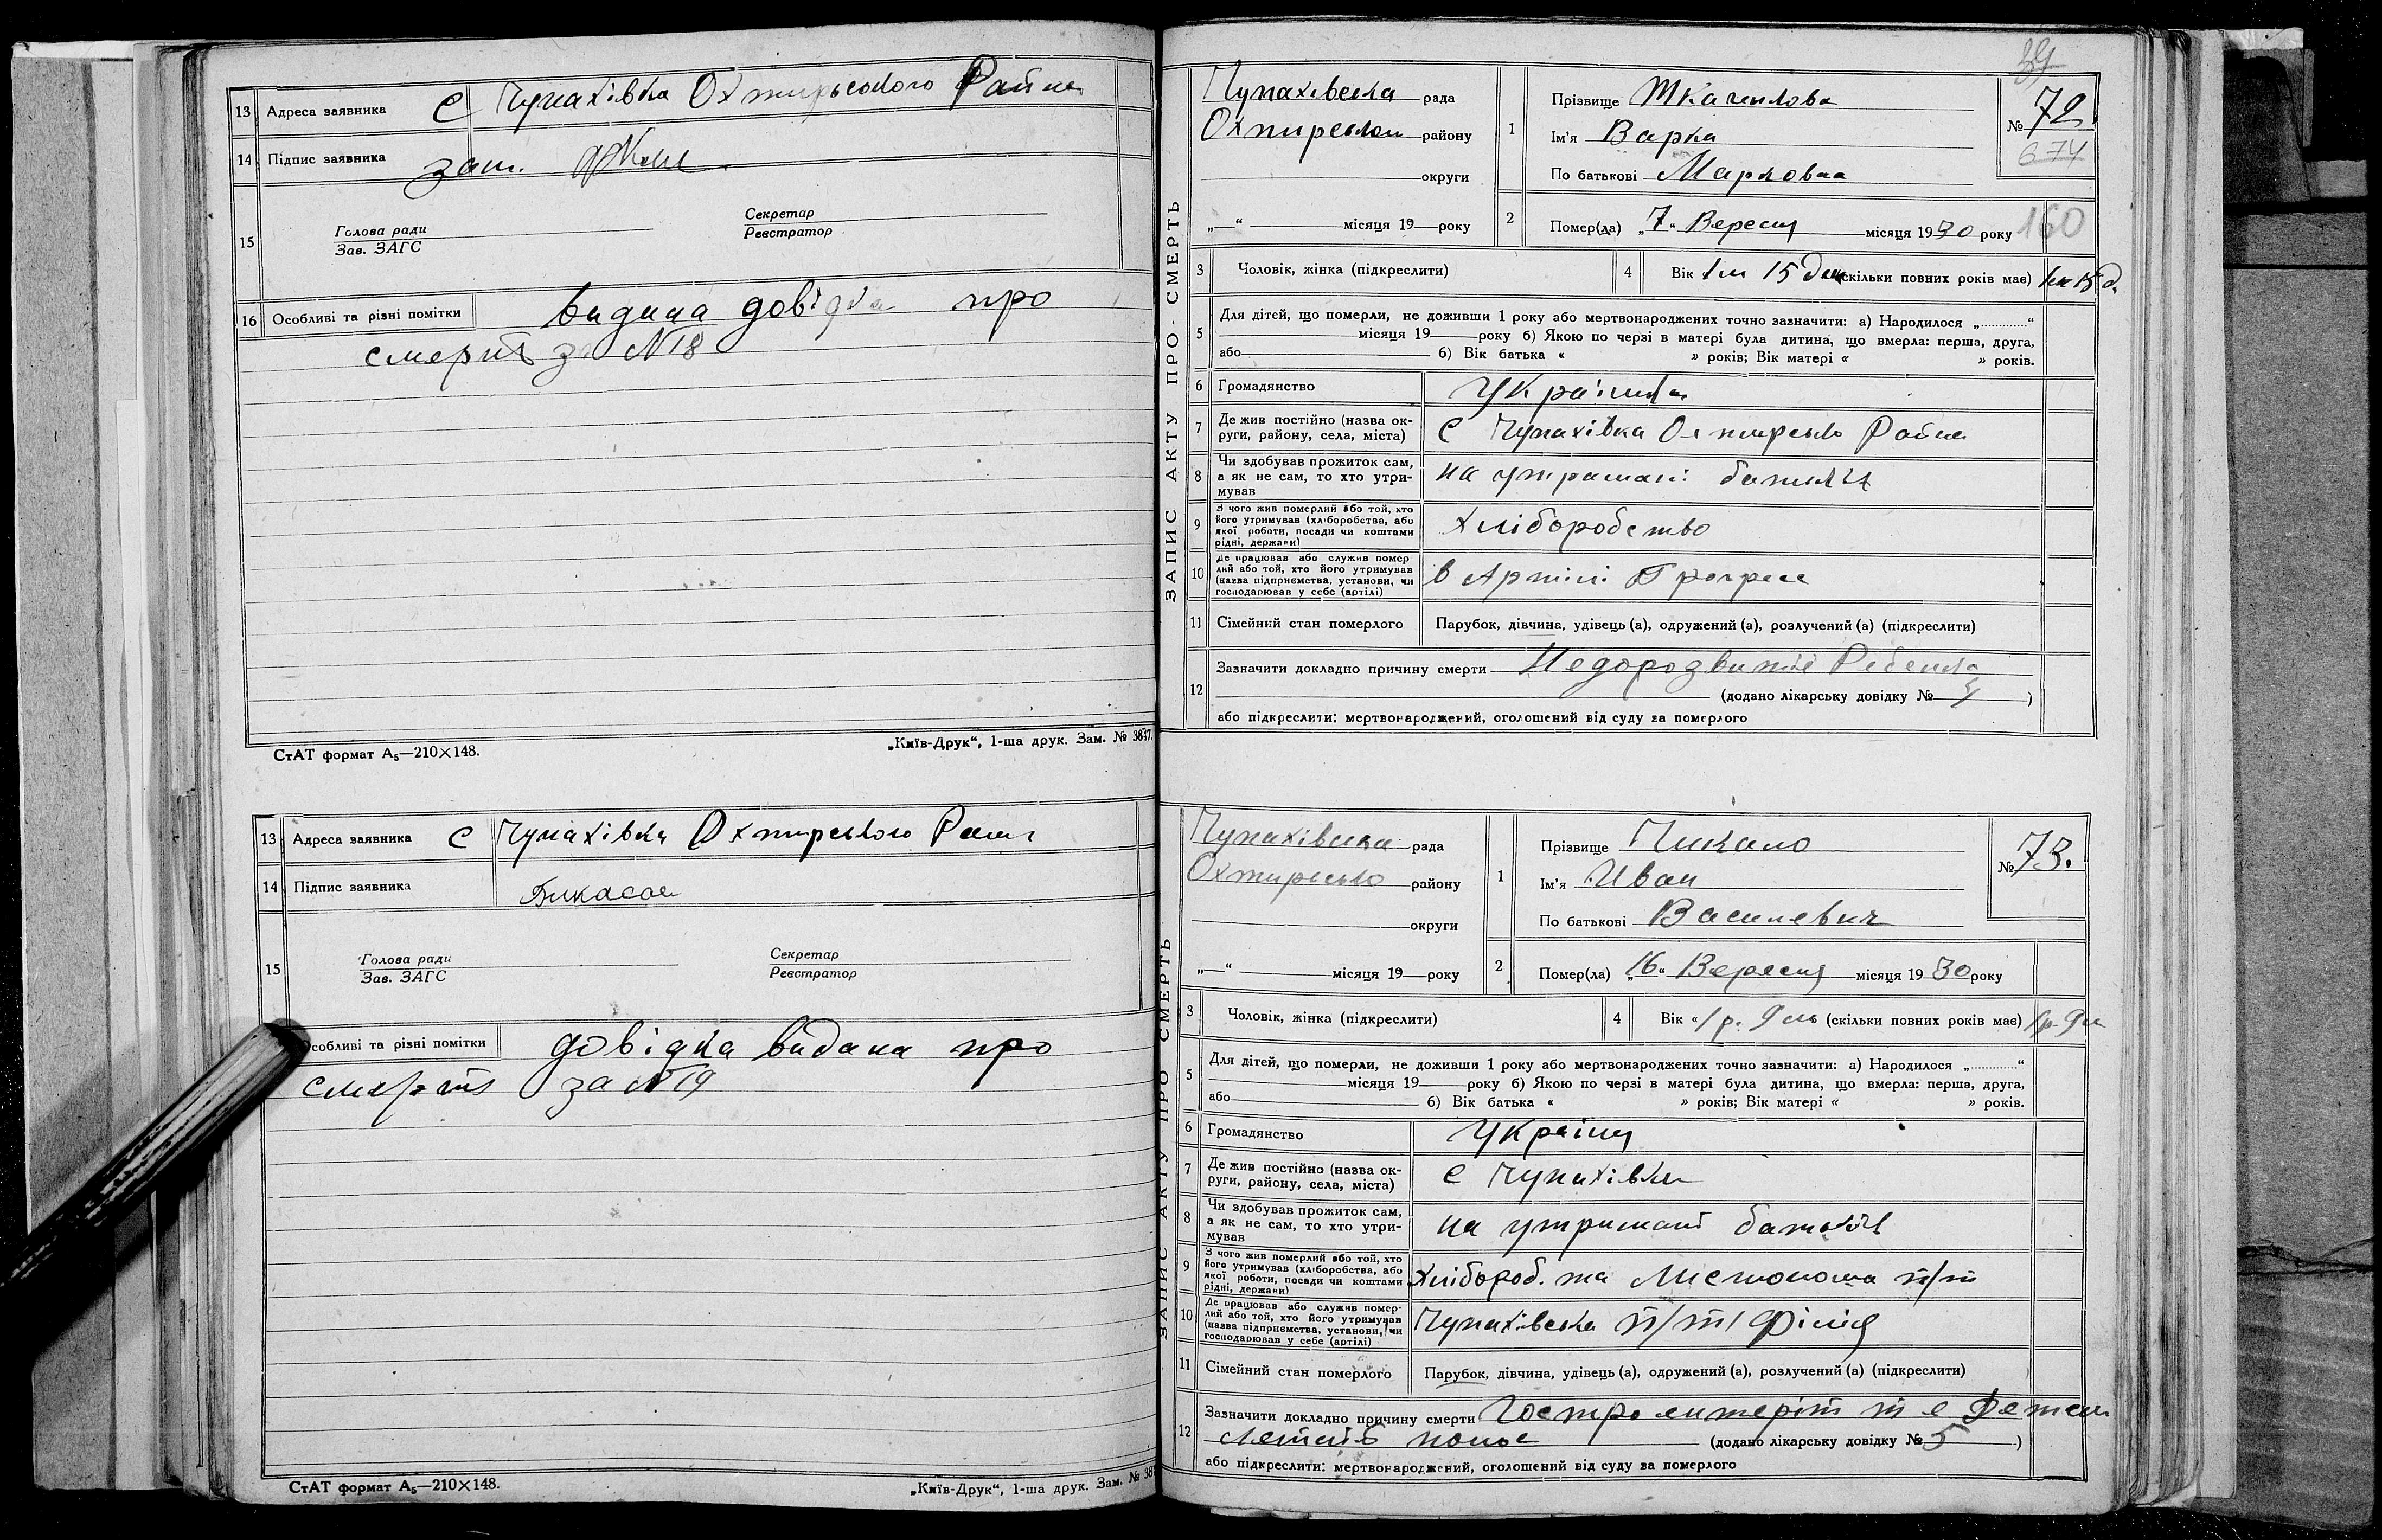 13 Адреса заявника С Чупахівка Охтирського Района
14 Підпис заявника
15 Голова ради Секретар
Зав. ЗАГС Реєстратор
16 Особливі та різні помітки видана довідка про
смерть за №18
СтАТ формат А5—210×148. „Київ-Друк“, 1-ша друк. Зам. № 3847.
13 Адреса заявника С Чупахівка Охтирського
14 Підпис заявника
15 Голова ради Секретар
Зав. ЗАГС Реєстратор
собливі та різні помітки довідка видана про
смерть за №19
СтАТ формат А5—210×148. „Київ-Друк“, 1-ша друк. Зам. № 38
39
ЗАПИС АКТУ ПРО СМЕРТЬ
Чупахівська рада
району
округи
„—“ місяця 19—року
1 Прізвище
Ім'я Варка
По батькові Марковна
№ 72
674
2 Помер(ла) „7“ Вересня місяця 1930 року 160
3 Чоловік, жінка (підкреслити)
4 Вік 1м 15 (скільки повних років має) 1м 15 д.
5 Для дітей, що померли, не доживши 1 року або мертвонароджених точно зазначити: а) Народилося „............“
місяця 19——року б) Якою по черзі в матері була дитина, що вмерла: перша, друга,
або б) Вік батька « » років; Вік матері « » років.
6 Громадянство Українка
7 Де жив постійно (назва ок-
руги, району, села, міста) С Чупахівка Района
8 Чи здобував прожиток сам,
а як не сам, то хто утри-
мував на утримані батьків
9 З чого жив померлий або той, хто
його утримував (хліборобства, або
якої роботи, посади чи коштами
рідні, держави) Хліборобство
10 Де працював або служив помер
лий або той, хто його утримував
(назва підприємства, установи, чи
господарював у себе (артілі) в Артілі Прогрес
11 Сімейний стан померлого Парубок, дівчина, удівець (а), одружений (а), розлучений (а) (підкреслити)
12 Зазначити докладно причину смерти Недорозвитіє Ребенка
(додано лікарську довідку № )
або підкреслити: мертвонароджений, оголошений від суду за померлого
ЗАПИС АКТУ ПРО СМЕРТЬ
Чупахівська рада
району
округи
„—“ місяця 19—року
1 Прізвище
Ім'я Иван
По батькові Василевич
№ 73.
2 Помер(ла) „16“ Вересня місяця 1930 року
3 Чоловік, жінка (підкреслити)
4 Вік « 1 р. 9 м (скільки повних років має) 1р. 9м
5 Для дітей, що померли, не доживши 1 року або мертвонароджених точно зазначити: а) Народилося „............“
місяця 19——року б) Якою по черзі в матері була дитина, що вмерла: перша, друга,
або б) Вік батька « » років; Вік матері « » років.
6 Громадянство
7 Де жив постійно (назва ок-
руги, району, села, міста) С Чупахівка
8 Чи здобував прожиток сам,
а як не сам, то хто утри-
мував на утримані батьків
9 З чого жив померлий або той, хто
його утримував (хліборобства, або
якої роботи, посади чи коштами
рідні, держави) Хлібороб. та Листоноша п/т
10 Де працював або служив помер-
лий або той, хто його утримував
(назва підприємства, установи, чи
господарював у себе (артілі) Чупахівська п/т філія
11 Сімейний стан померлого Парубок, дівчина, удівець (а), одружений (а), розлучений (а) (підкреслити)
12 Зазначити докладно причину смерти Гостро
(додано лікарську довідку № 5 )
або підкреслити: мертвонароджений, оголошений від суду за померлого